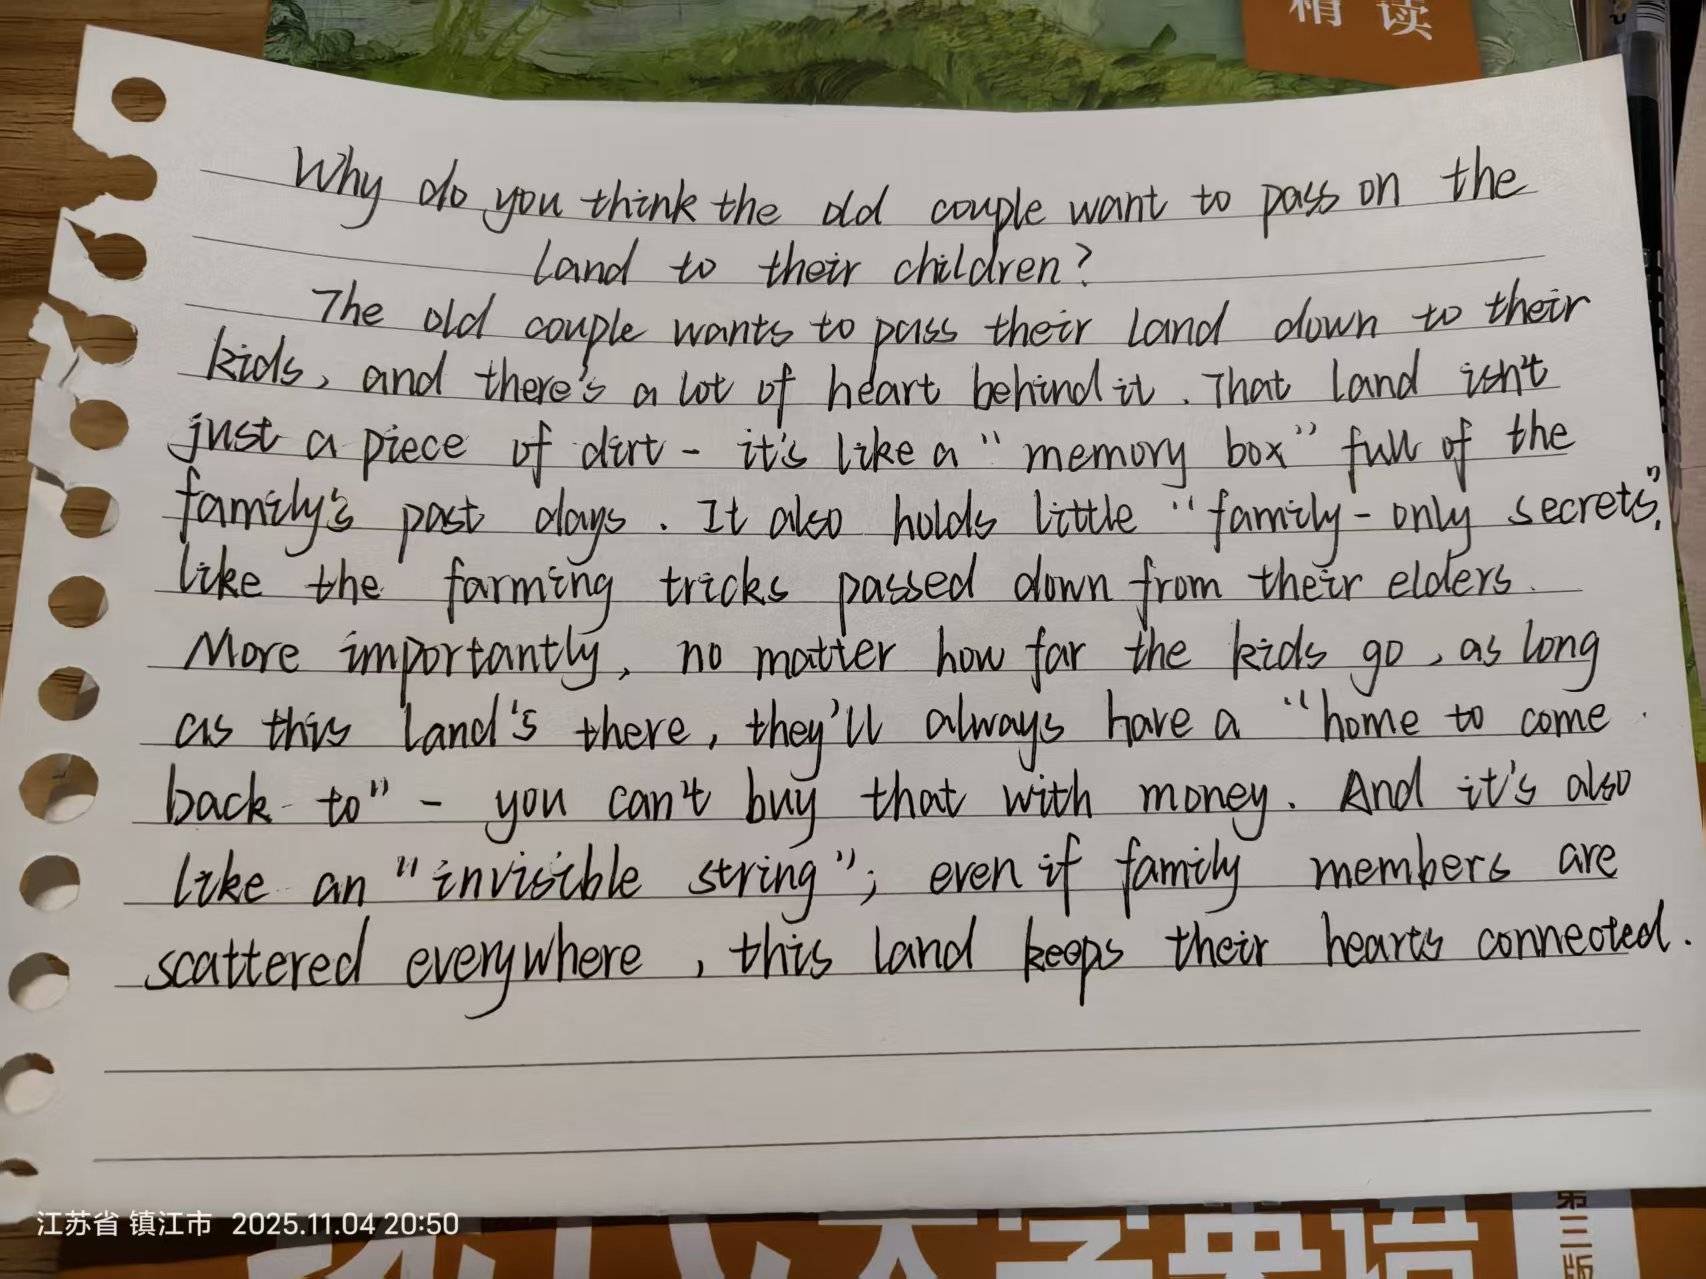 精读
Why do you think the old couple want to pass on the
land to their children?
The old couple wants to pass their land down to their
kids, and there's a lot of heart behind it. That land isn't
just a piece of dirt - it's like a "memory box" full of the
family's past days. It also holds little "family-only secrets",
like the farming tricks passed down from their elders.
More importantly, no matter how far the kids go, as long
as this land's there, they'll always have a "home to come
back to" - you can't buy that with money. And it's also
like an "invisible string"; even if family members are
scattered everywhere, this land keeps their hearts connected.
江苏省 镇江市 2025.11.04 20:50
现代大学英语
第三版